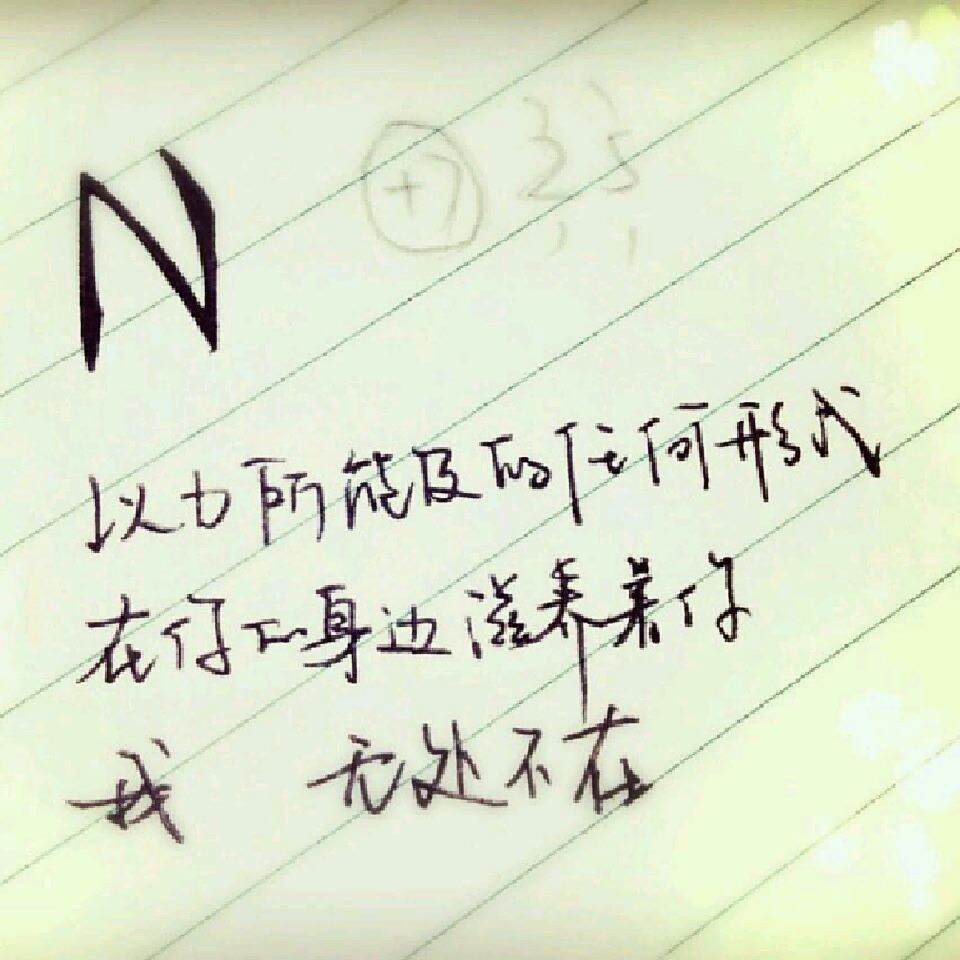 N
以力所能及的任何形式
在你的身边滋养着你
我 无处不在